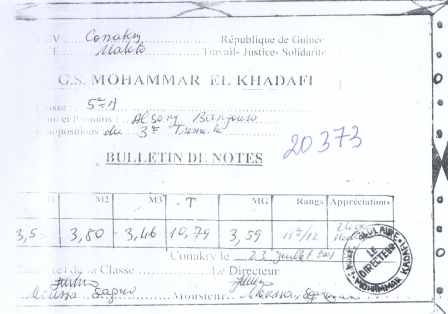 Conakry République de Guinée
Matoto Travail- Justice- Solidarité
G.S. MOHAMMAR EL KHADAFI
Classe : 5e A
Nom et Prénoms : Alseny Bangoura
Compositions du 3e Trimestre
20 373
BULLETIN DE NOTES
M2 M3 T MG Rangs Appréciations
3,5 3,80 3,46 10,79 3,59 11e/12
Conakry le 23 juillet
de la Classe Le Directeur
Moussa Sagno Monsieur Moussa Sagno
LE DIRECTEUR
MOHAMMAR KADHAFI